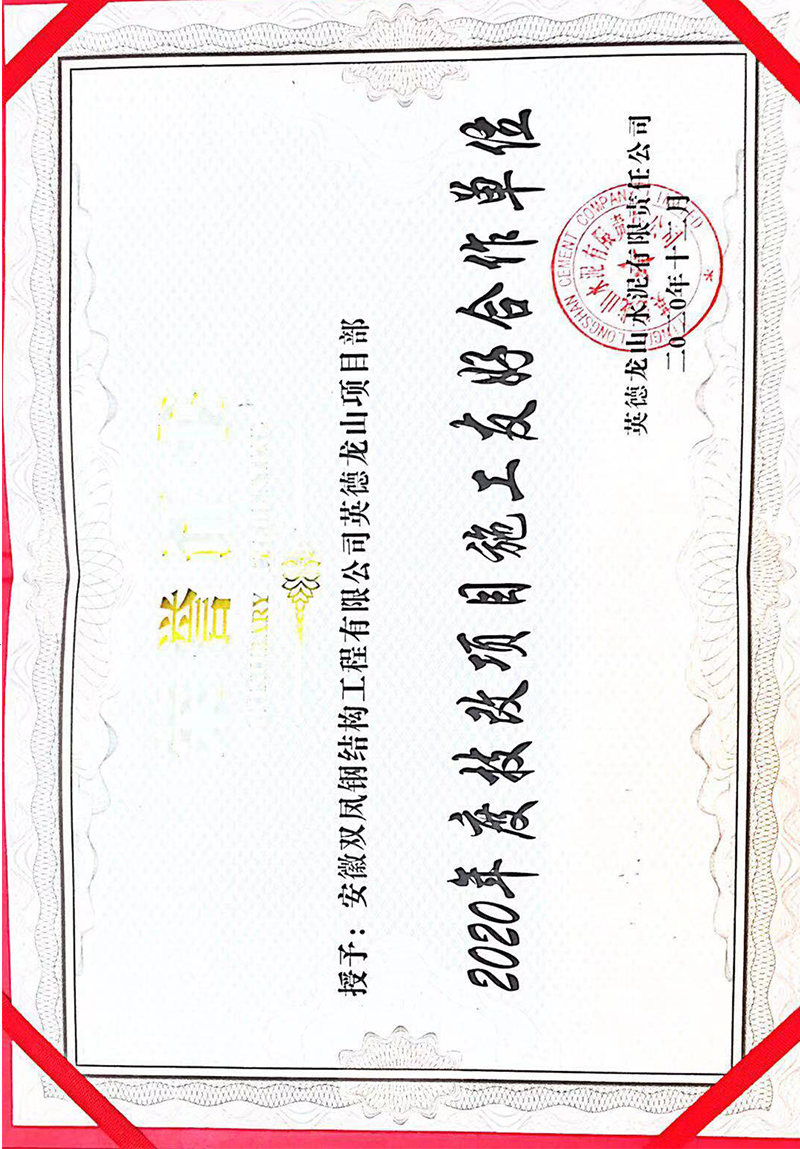 荣誉证书
授予：安徽双凤钢结构工程有限公司英德龙山项目部
2020年度技改项目施工友好合作单位
英德龙山水泥有限责任公司
二〇二〇年十二月
LONGSHAN CEMENT COMPANY LIMITED